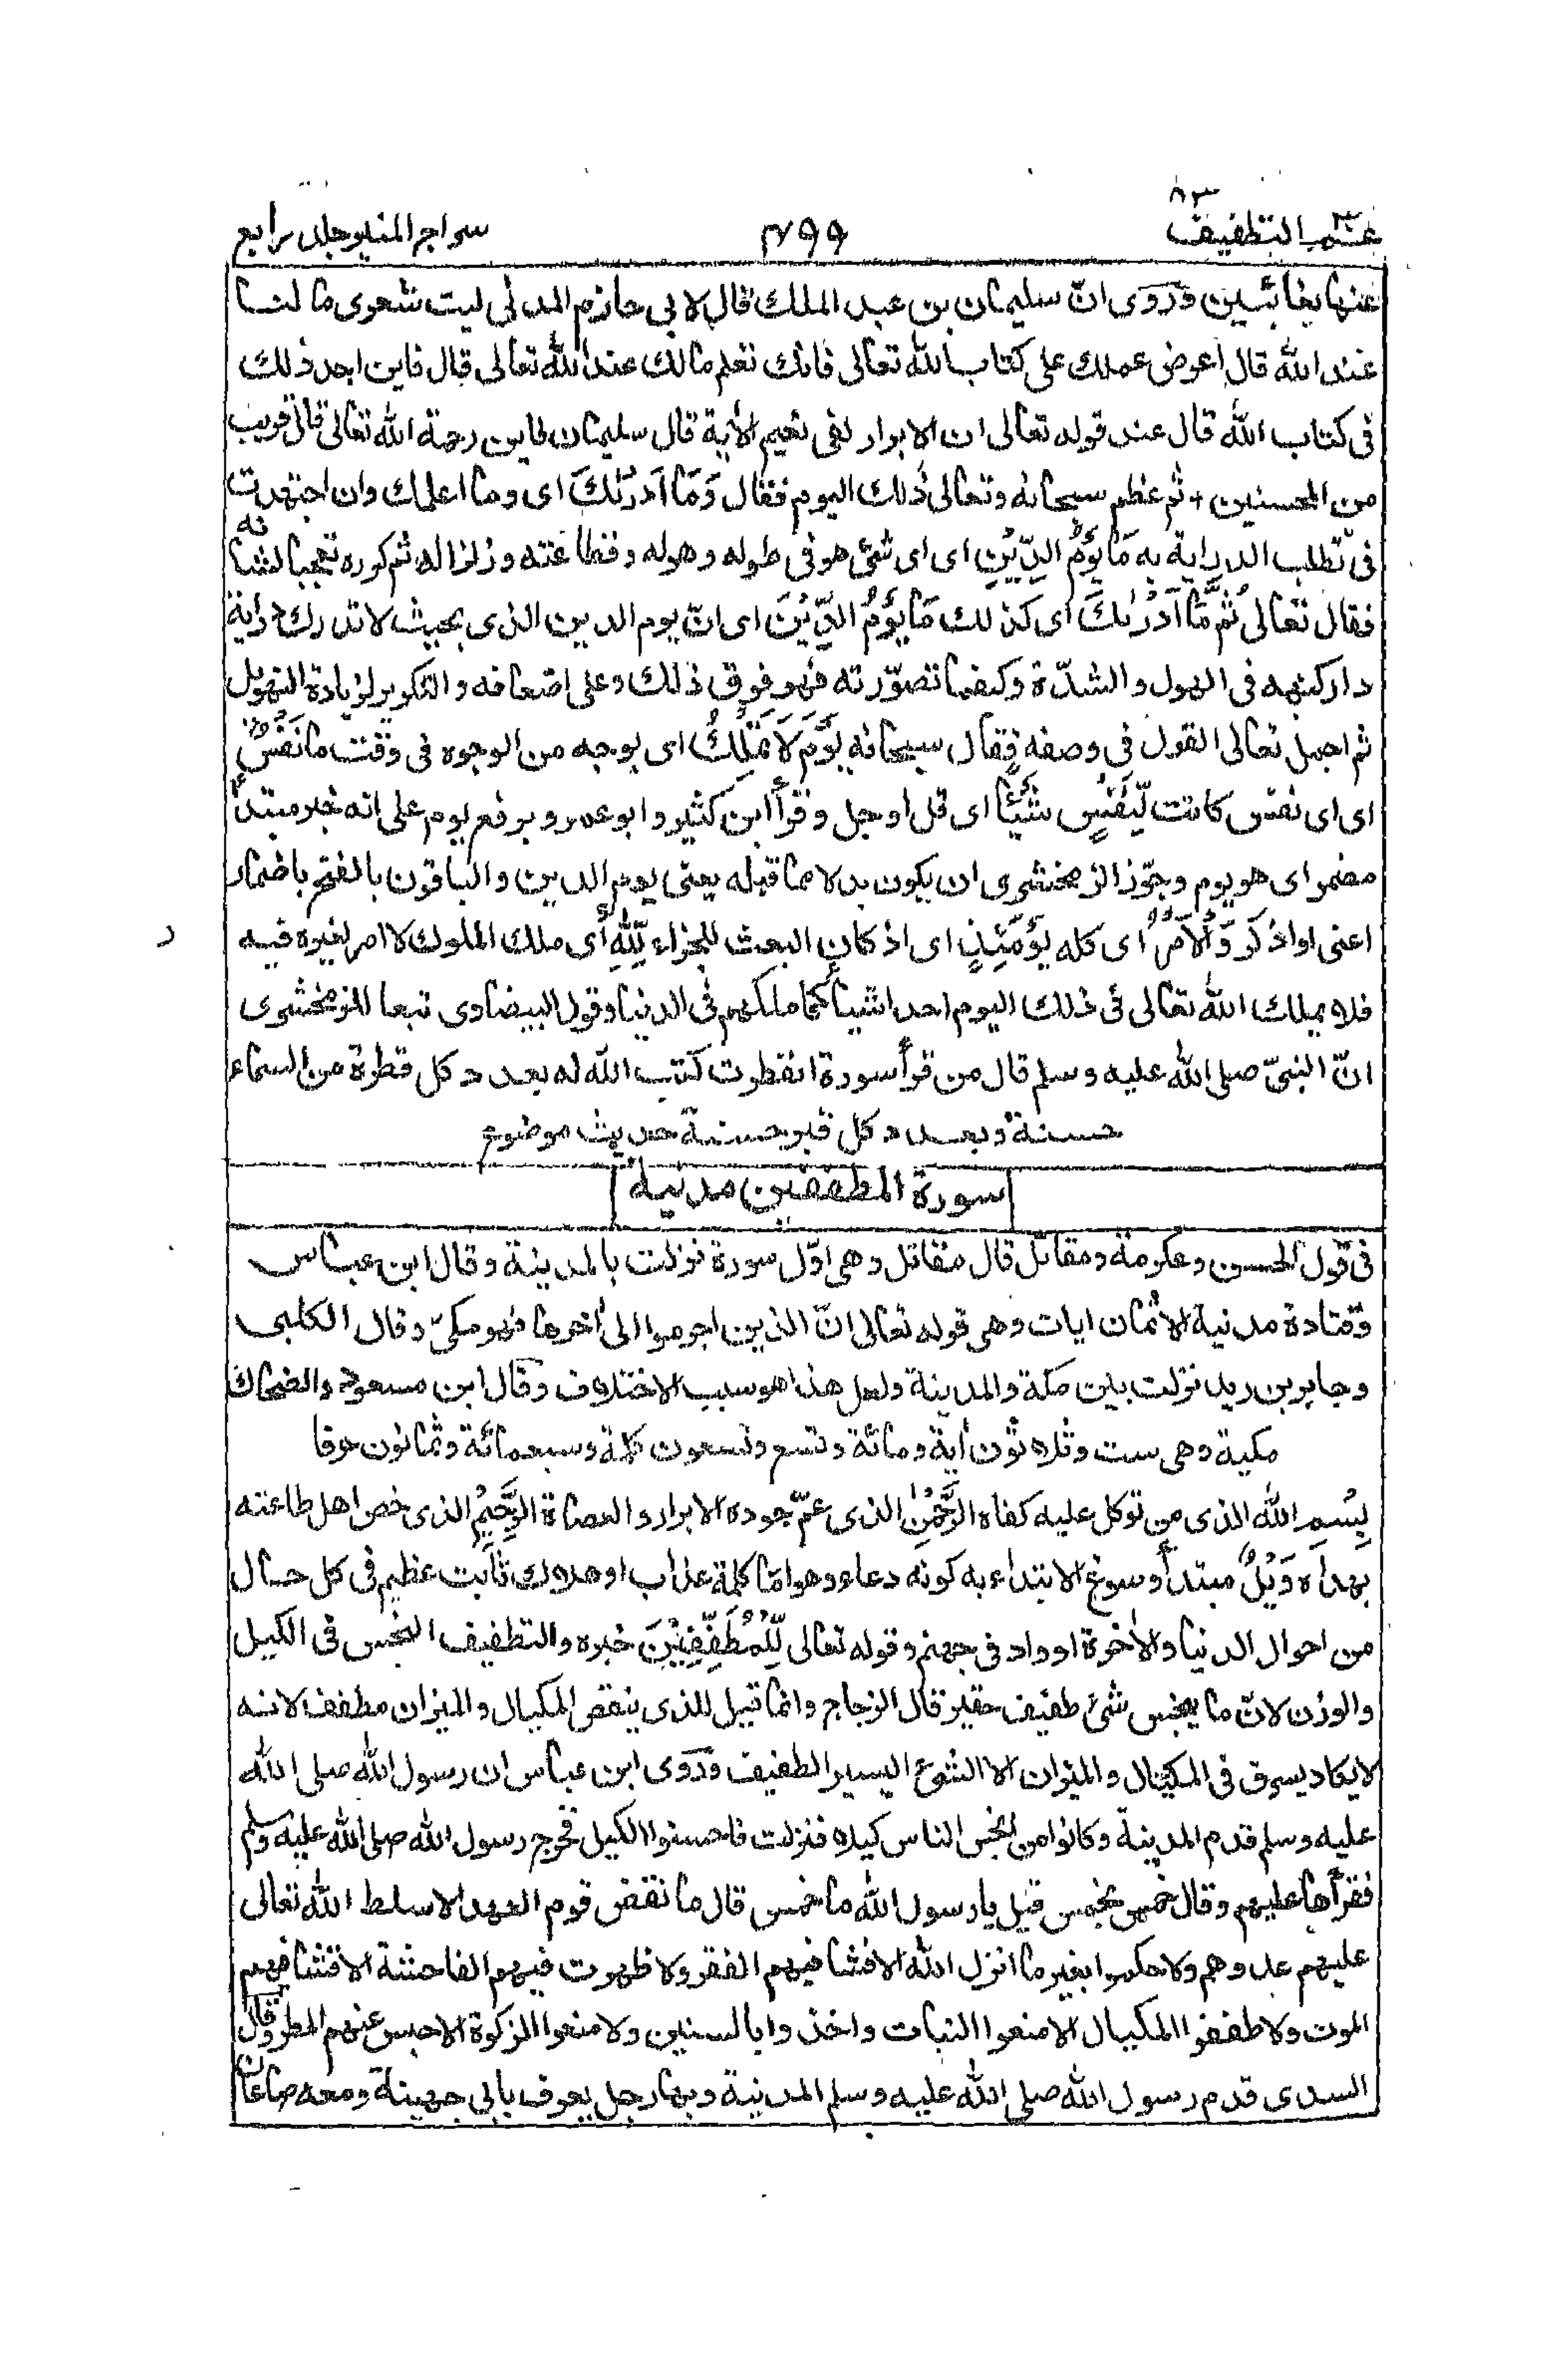 عم التطفيف ٨٣
٤٩٩
سراج المنير جلد رابع
عنها بغائبين وروى انّ سليمان بن عبد الملك قال لابى حازم المدنى ليت شعرى ما لنا
عند الله قال اعرض عملك على كتاب الله تعالى فانك تعلم مالك عند الله تعالى قال فاين اجد ذلك
فى كتاب الله قال عند قوله تعالى ان الابرار لفى نعيم الآية قال سليمان فاين رحمة الله تعالى قال قريب
من المحسنين + ثم عظم سبحانه وتعالى ذلك اليوم فقال وَمَا اَدْرٰىكَ اى وما اعلمك وان اجتهدت
فى تطلب الدراية به مَا يَوْمُ الدِّيْنِ اى اى شئ هو فى طوله وهوله وفظاعته وزلزاله ثم كرره تعجبا لشانه
فقال تعالى ثُمَّ مَا اَدْرٰىكَ اى كذلك مَا يَوْمُ الدِّيْنِ اى انّ يوم الدين الذى بحيث لا تدرك دراية
دار كنهه فى الهول والشدّة وكيفما تصوّرته فهو فوق ذلك وعلى اضعافه والتكرير لزيادة التهويل
ثم اجمل تعالى القول فى وصفه فقال سبحانه يَوْمَ لَا تَمْلِكُ اى بوجه من الوجوه فى وقت ما نَفْسٌ
اى اى نفس كانت لِّنَفْسٍ شَيْئًا اى قل او جل وقرأ ابن كثير وابو عمرو برفع يوم على انه خبر مبتدأ
مضمر اى هو يوم وجوّز الزمخشرى ان يكون بدلا مما قبله يعنى يوم الدين والباقون بالفتح باضمار
اعنى او اذكر وَالْاَمْرُ اى كله يَوْمَئِذٍ اى اذ كان البعث للجزاء لِّلّٰهِ اى ملك الملوك لا امر لغيره فيه
فلا يملك الله تعالى فى ذلك اليوم احدا شيأ كما ملكهم فى الدنيا وقول البيضاوى تبعا للزمخشرى
انّ النبىّ صلى الله عليه وسلم قال من قرأ سورة انفطرت كتب الله له بعدد كل قطرة من السماء
حسنة وبعدد كل قبر حسنة حديث موضوع
سورة المطففين مدنية
فى قول الحسن وعكرمة ومقاتل قال مقاتل وهى اوّل سورة نزلت بالمدينة وقال ابن عباس
وقتادة مدنية الا ثمان ايات وهى قوله تعالى انّ الذين اجرموا الى اخرها فهو مكىّ وقال الكلبى
وجابر بن زيد نزلت بين مكة والمدينة ولعل هذا هو سبب الاختلاف وقال ابن مسعود والضحاك
مكية وهى ست وثلاثون اية ومائة وتسع وتسعون كلمة وسبعمائة وثمانون حرفا
بِسْمِ اللّٰهِ الذى من توكل عليه كفاه الرَّحْمٰنِ الذى عمّ جوده الابرار والعصاة الرَّحِيْمِ الذى خص اهل طاعته
بهداه وَيْلٌ مبتدأ وسوغ الابتداء به كونه دعاء وهو امّا كلمة عذاب او هلاك ثابت عظيم فى كل حال
من احوال الدنيا والاخرة او واد فى جهنم وقوله تعالى لِّلْمُطَفِّفِيْنَ خبره والتطفيف البخس فى الكيل
والوزن لانّ ما يبخس شئ طفيف حقير قال الزجاج وانما قيل للذى ينقص المكيال والميزان مطفف لانه
لا يكاد يسرق فى المكيال والميزان الا الشئ اليسير الطفيف وروى ابن عباس ان رسول الله صلى الله
عليه وسلم قدم المدينة وكانوا من ابخس الناس كيلا فنزلت فاحسنوا الكيل فخرج رسول الله صلى الله عليه وسلم
فقرأها عليهم وقال خمس بخمس قيل يا رسول الله ما خمس قال ما نقض قوم العهد الا سلط الله تعالى
عليهم عدوهم ولا حكموا بغير ما انزل الله الا فشا فيهم الفقر ولا ظهرت فيهم الفاحشة الا فشا فيهم
الموت ولا طففوا المكيال الا منعوا النبات واخذوا بالسنين ولا منعوا الزكوة الا حبس عنهم المطر وقال
السدى قدم رسول الله صلى الله عليه وسلم المدينة وبها رجل يعرف بابى جهينة ومعه صاعان